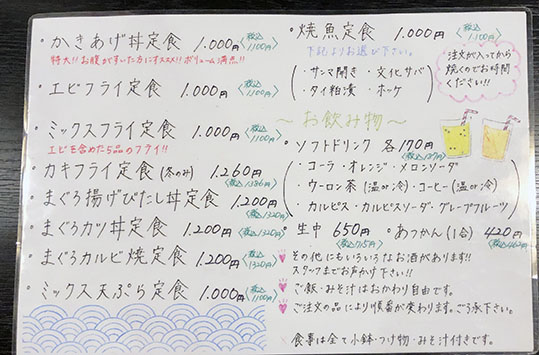 ・かきあげ丼定食 1.000円 (税込 1,100円)
特大!! お腹がすいた方にオススメ!! ボリューム満点!!
・エビフライ定食 1.000円 (税込 1,100円)
・ミックスフライ定食 1.000円 (税込 1,100円)
エビを含めた5品のフライ!!
・カキフライ定食 (冬のみ) 1,260円 (税込 1386円)
・まぐろ揚げびたし丼定食 1.200円 (税込 1,320円)
・まぐろカツ丼定食 1.200円 (税込 1,320円)
・まぐろカルビ焼定食 1.200円 (税込 1320円)
・ミックス天ぷら定食 1.000円 (税込 1,100円)
・焼魚定食 1.000円 (税込 1,100円)
下記よりお選び下さい。
・サンマ開き ・文化サバ
・タイ粕漬 ・ホッケ
注文が入ってから
焼くのでお時間
ください!!
～お飲み物～
・ソフトドリンク 各170円 (税込 187円)
・コーラ・オレンジ・メロンソーダ
・ウーロン茶(温or冷)・コーヒー(温or冷)
・カルピス・カルピスソーダ・グレープフルーツ
・生中 650円 (税込 715円) ・あつかん(1合) 420円 (税込 462円)
その他にもいろいろなお酒があります!!
スタッフまでお声かけ下さい!!
ご飯・みそ汁はおかわり自由です。
ご注文の品により順番が変わります。ご了承下さい。
×食事は全て小鉢・つけ物・みそ汁付きです。